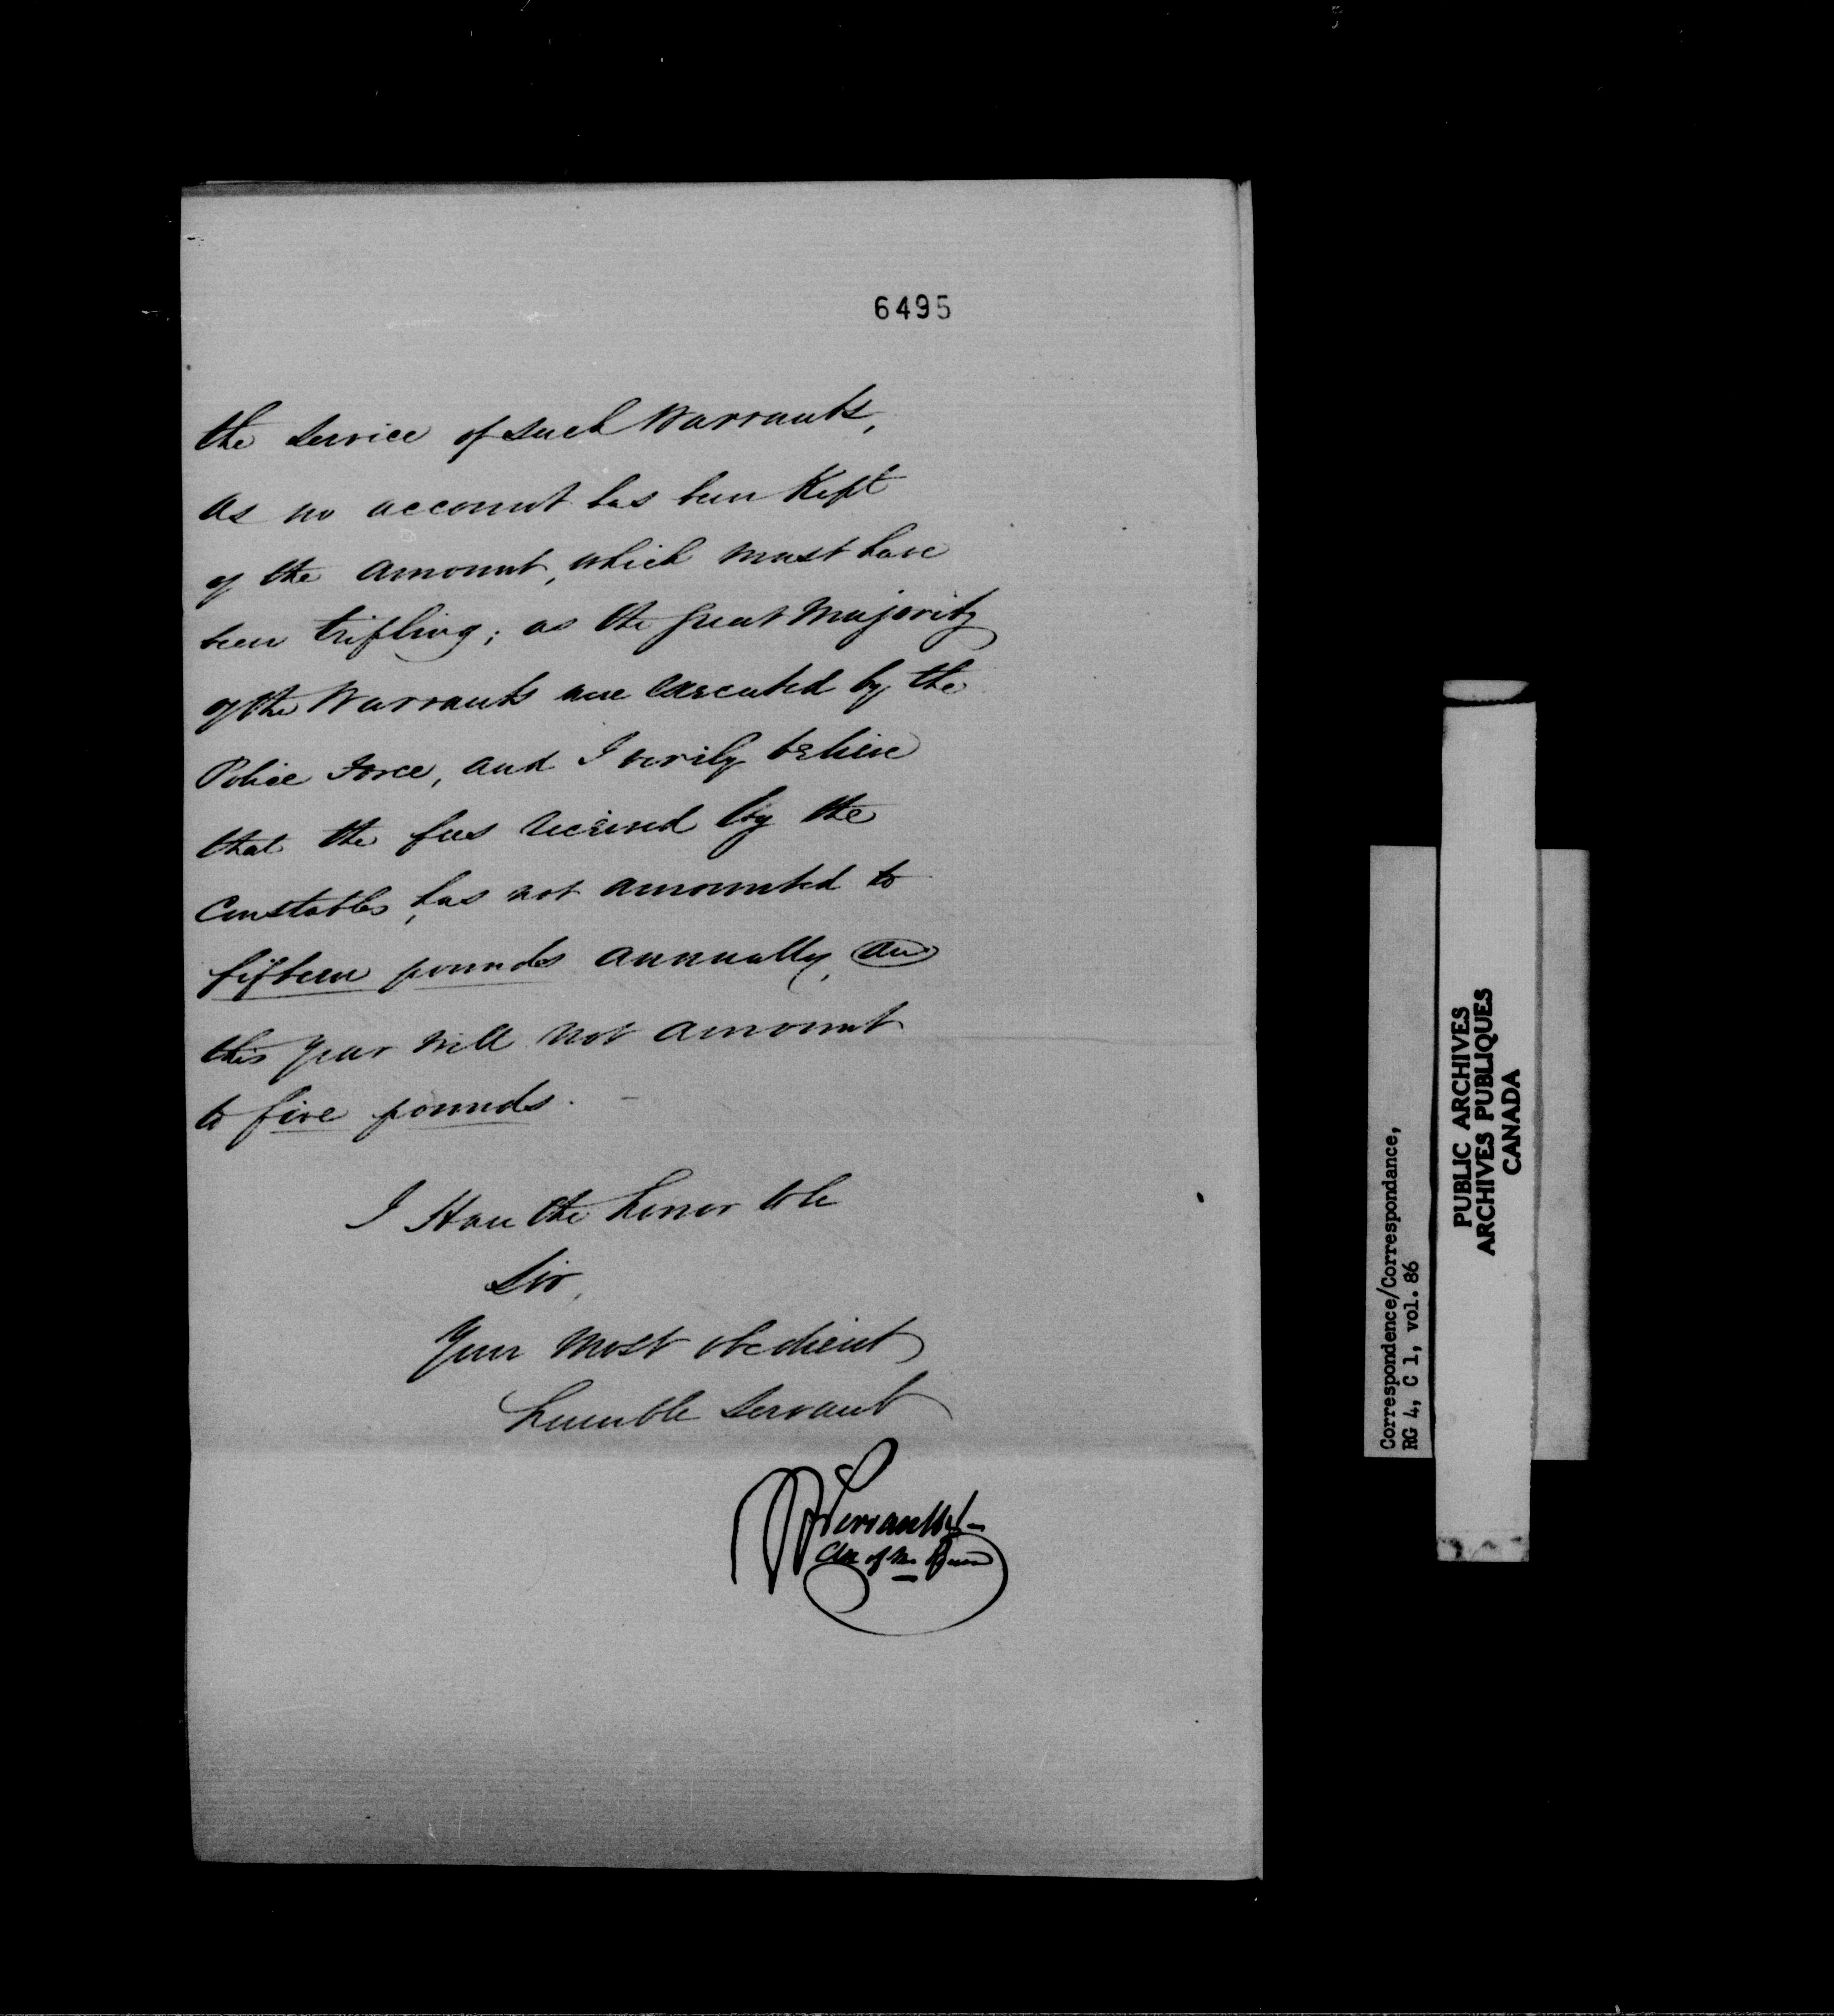 6495
the service of such Warrants,
as no account has been Kept
of the amount, which must have
been trifling; as the great Majority
of the Warrants are executed by the
Police Force, and I verily believe
that the fees received by the
Constables, has not amounted to
fifteen pounds annually, and
this year will not amount
to five pounds. -
I Have the honor to be
Sir,
Your most obedient
humble servant
Clk of the Peace
Correspondence/Correspondance,
RG 4, C 1, vol. 86
PUBLIC ARCHIVES
ARCHIVES PUBLIQUES
CANADA